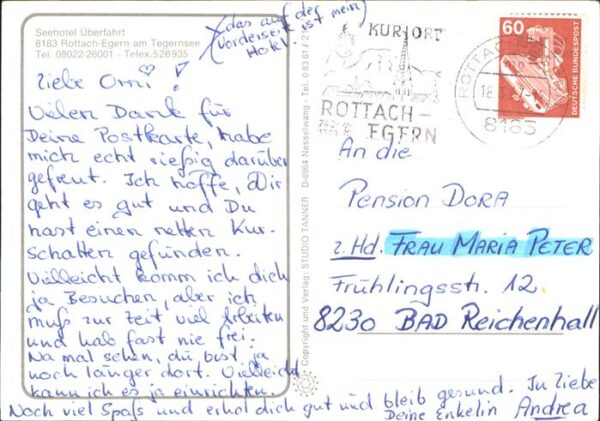 Seehotel Überfahrt
8183 Rottach-Egern am Tegernsee
Tel. 08022/26001 · Telex 528935
(das auf der
Vorderseite ist mein
Hotel.
Liebe Omi!
Vielen Dank für
Deine Postkarte, habe
mich echt rießig darüber
gefreut. Ich hoffe, Dir
geht es gut und Du
hast einen netten Kur-
schatten gefunden.
Vielleicht komm ich dich
ja Besuchen, aber ich
muß zur Zeit viel Arbeiten
und hab fast nie frei.
Na mal sehen, du bist ja
noch länger dort. Vielleicht
kann ich es ja einrichten.
Noch viel Spaß und erhol dich gut und bleib gesund. In Liebe
Deine Enkelin Andrea
Copyright und Verlag: STUDIO TANNER D-8964 Nesselwang · Tel. 0 83 61 /
KURORT
ROTTACH-
EGERN
ROTTACH-
8183
60
DEUTSCHE BUNDESPOST
An die
Pension Dora
z. Hd. Frau Maria Peter
Frühlingsstr. 12
8230 Bad Reichenhall